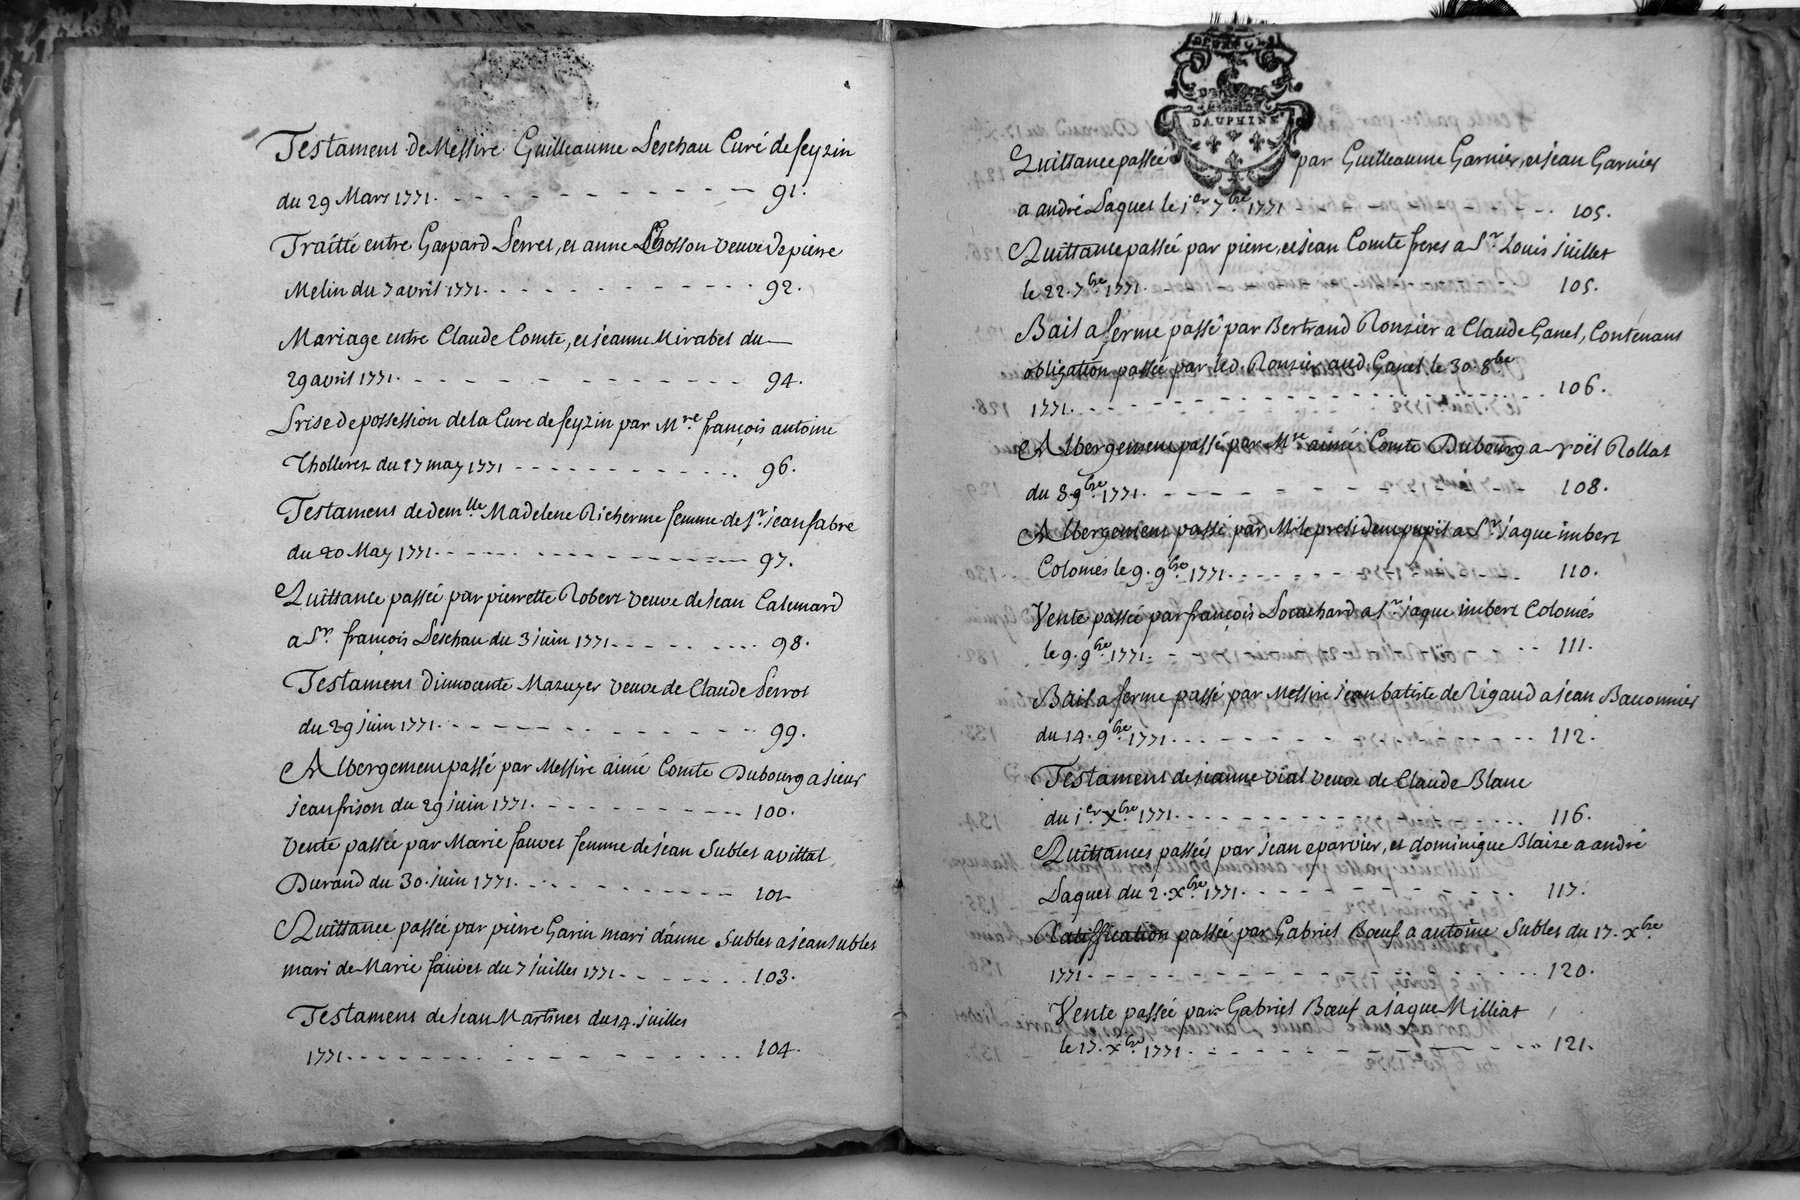 Testament de Messire Guilleaume Peschau Curé de feyzin
du 29 Mars 1771. 91.
Traitté entre Gaspard Perret, et anne Chosson veuve de pierre
Melin du 7 avril 1771. 92.
Mariage entre Claude Comte, et jeanne Mirabel du
29 avril 1771. 94.
Prise de possession de la Cure de feyzin par Mre françois antoine
Tholleret du 17 may 1771 96.
Testament de demlle Madelene Richerme femme de Sr jean fabre
du 20 May 1771. 97.
Quittance passée par pierrette Robert veuve de jean Calemard
a Sr françois Peschau du 3 juin 1771. 98.
Testament d'innocente Mazuyer veuve de Claude Perrot
du 29 juin 1771. 99.
Albergement passé par Messire aimé Comte Dubourg a sieur
jean frison du 29 juin 1771. 100.
Vente passée par Marie fauvet femme de jean Sublet a vittal
Durand du 30. juin 1771. 101
Quittance passée par pierre Garin mari d'anne Sublet a jean sublet
mari de Marie fauvet du 7 juillet 1771 103.
Testament de jean Martinet du 14. juillet
1771. 104.
DAUPHINÉ
Quittance passée par Guilleaume Garnier, et jean Garnier
a andré Paquet le 1er 7bre 1771 105.
Quittance passée par pierre, et jean Comte freres a Sr Louis juillet
le 22. 7bre 1771. 105.
Bail a ferme passé par Bertrand Ronzier a Claude Ganel, Contenant
obligation passée par led. Ronzier aud. Ganel le 30. 8bre
1771. 106.
Albergement passé par Mre aimé Comte Dubourg a noël Rollat
du 8 9bre 1771. 108.
Albergement passé par M. le president pupil a Sr jaque imbert
Colomés le 9. 9bre 1771. 110.
Vente passée par françois Pocachard a Sr jaque imbert Colomés
le 9. 9bre 1771. 111.
Bail a ferme passé par Messire jean batiste de Rigaud a jean Bauonnier
du 14. 9bre 1771. 112.
Testament de jeanne vial veuve de Claude Blanc
du 1er Xbre 1771. 116.
Quittances passées par jean eparvier, et dominique Blaize a andré
Paquet du 2. Xbre 1771. 117.
Ratiffication passée par Gabriel Bœuf a antoine Sublet du 17. Xbre
1771. 120.
Vente passée par Gabriel Bœuf a jaque Milliat
le 17. Xbre 1771. 121.